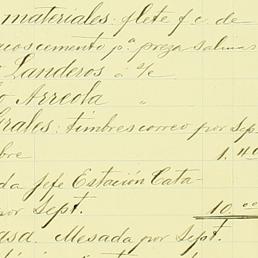 materiales: flete f.c. de
cemento pª. preza salinas
Landeros á s/c
Arreola "
rales: timbres correo por Sep.
bre 1.40
da Jefe Estación Cata-
por Sept. 10.00
asa. Mesada por Sept.